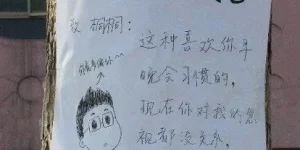 致 桐桐：
这种喜欢你早
晚会习惯的，
现在你对我的忽
视都没关系，